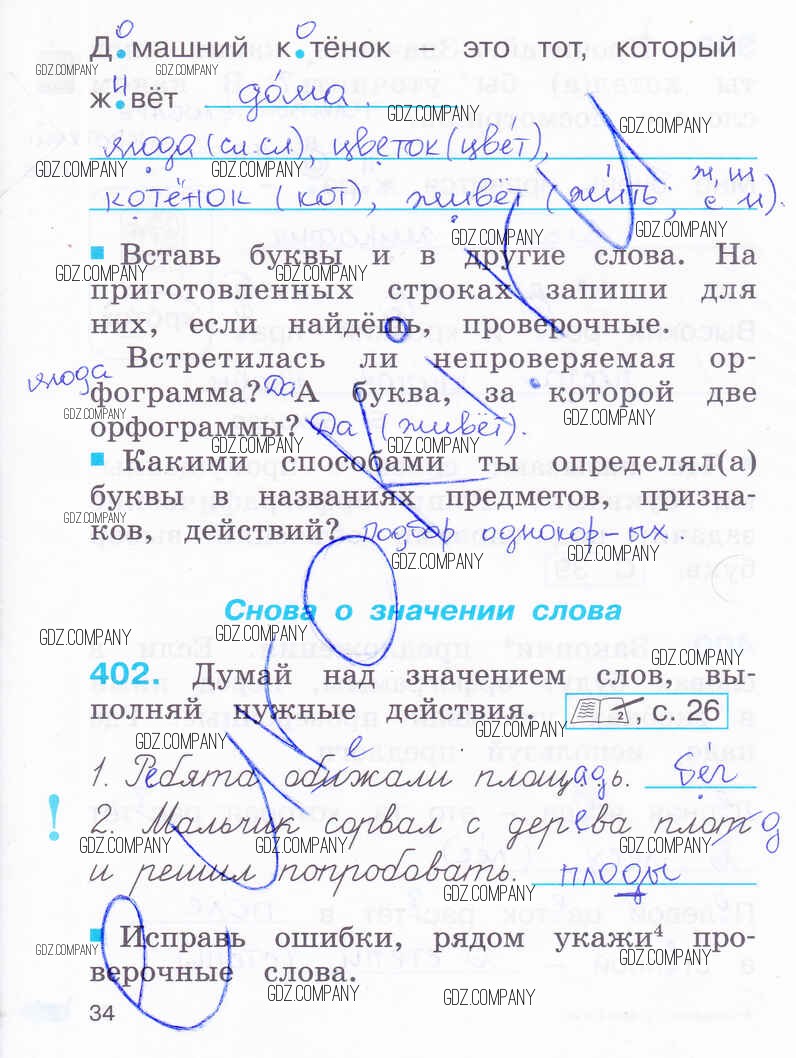 Домашний котёнок – это тот, который
живёт дома.
ягода (сл.сл), цветок (цвет),
котёнок (кот), живёт (жить, ж, ш с и).
Вставь буквы и в другие слова. На
приготовленных строках запиши для
них, если найдёшь, проверочные.
Встретилась ли непроверяемая ор-
ягода
фограмма? Да А буква, за которой две
орфограммы? Да (живёт).
Какими способами ты определял(а)
буквы в названиях предметов, призна-
ков, действий? Подбор однокор-ых.
Снова о значении слова
402. Думай над значением слов, вы-
полняй нужные действия. 2, с. 26
е
1. Ребята обижали площадь. бег
! 2. Мальчик сорвал с дерева плот д
и решил попробовать. плоды
Исправь ошибки, рядом укажи⁴ про-
верочные слова.
34
GDZ.COMPANY